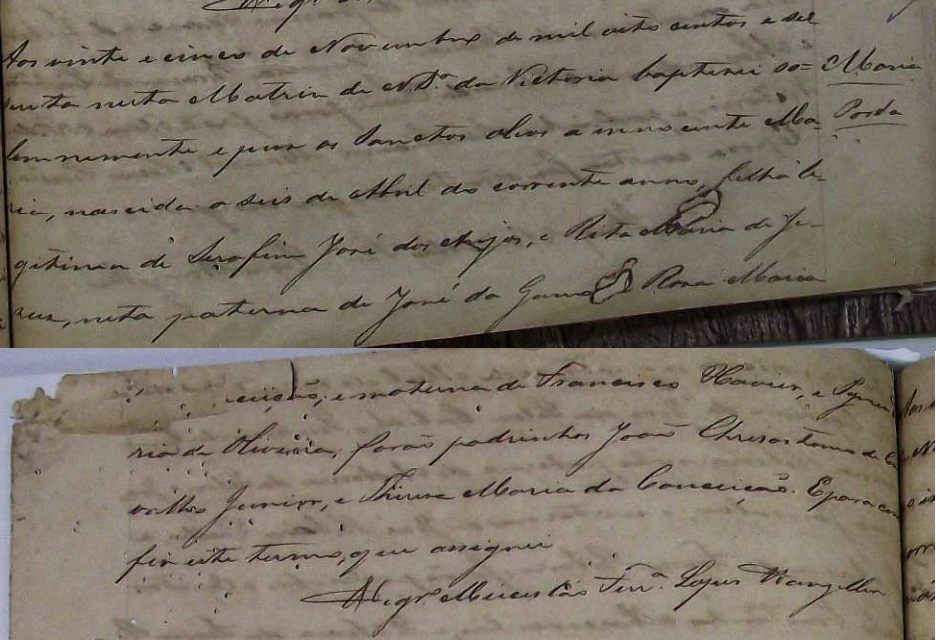 Aos vinte e cinco de Novembro de mil oito centos e ses
senta nesta Matriz de N. Sª. da Victoria baptisei so=
Maria
lemnemente e puz os Sanctos oleos a innocente Ma=
Parda
ria, nascida a seis de Abril do corrente anno, filha le-
gitima de Serafim José dos Anjos, e Rita Maria de Je-
sus, neta paterna de José da Gama e Rosa Maria
ceição, e materna de Francisco Xavier, e
ria de Oliveira, forão padrinhos João Chrisostomo de Ca
valho Junior, e Thereza Maria da Conceição. E para con
fiz este termo, que assignei
Vigrº. Miceslão Ferrª. Lopes Wangeller